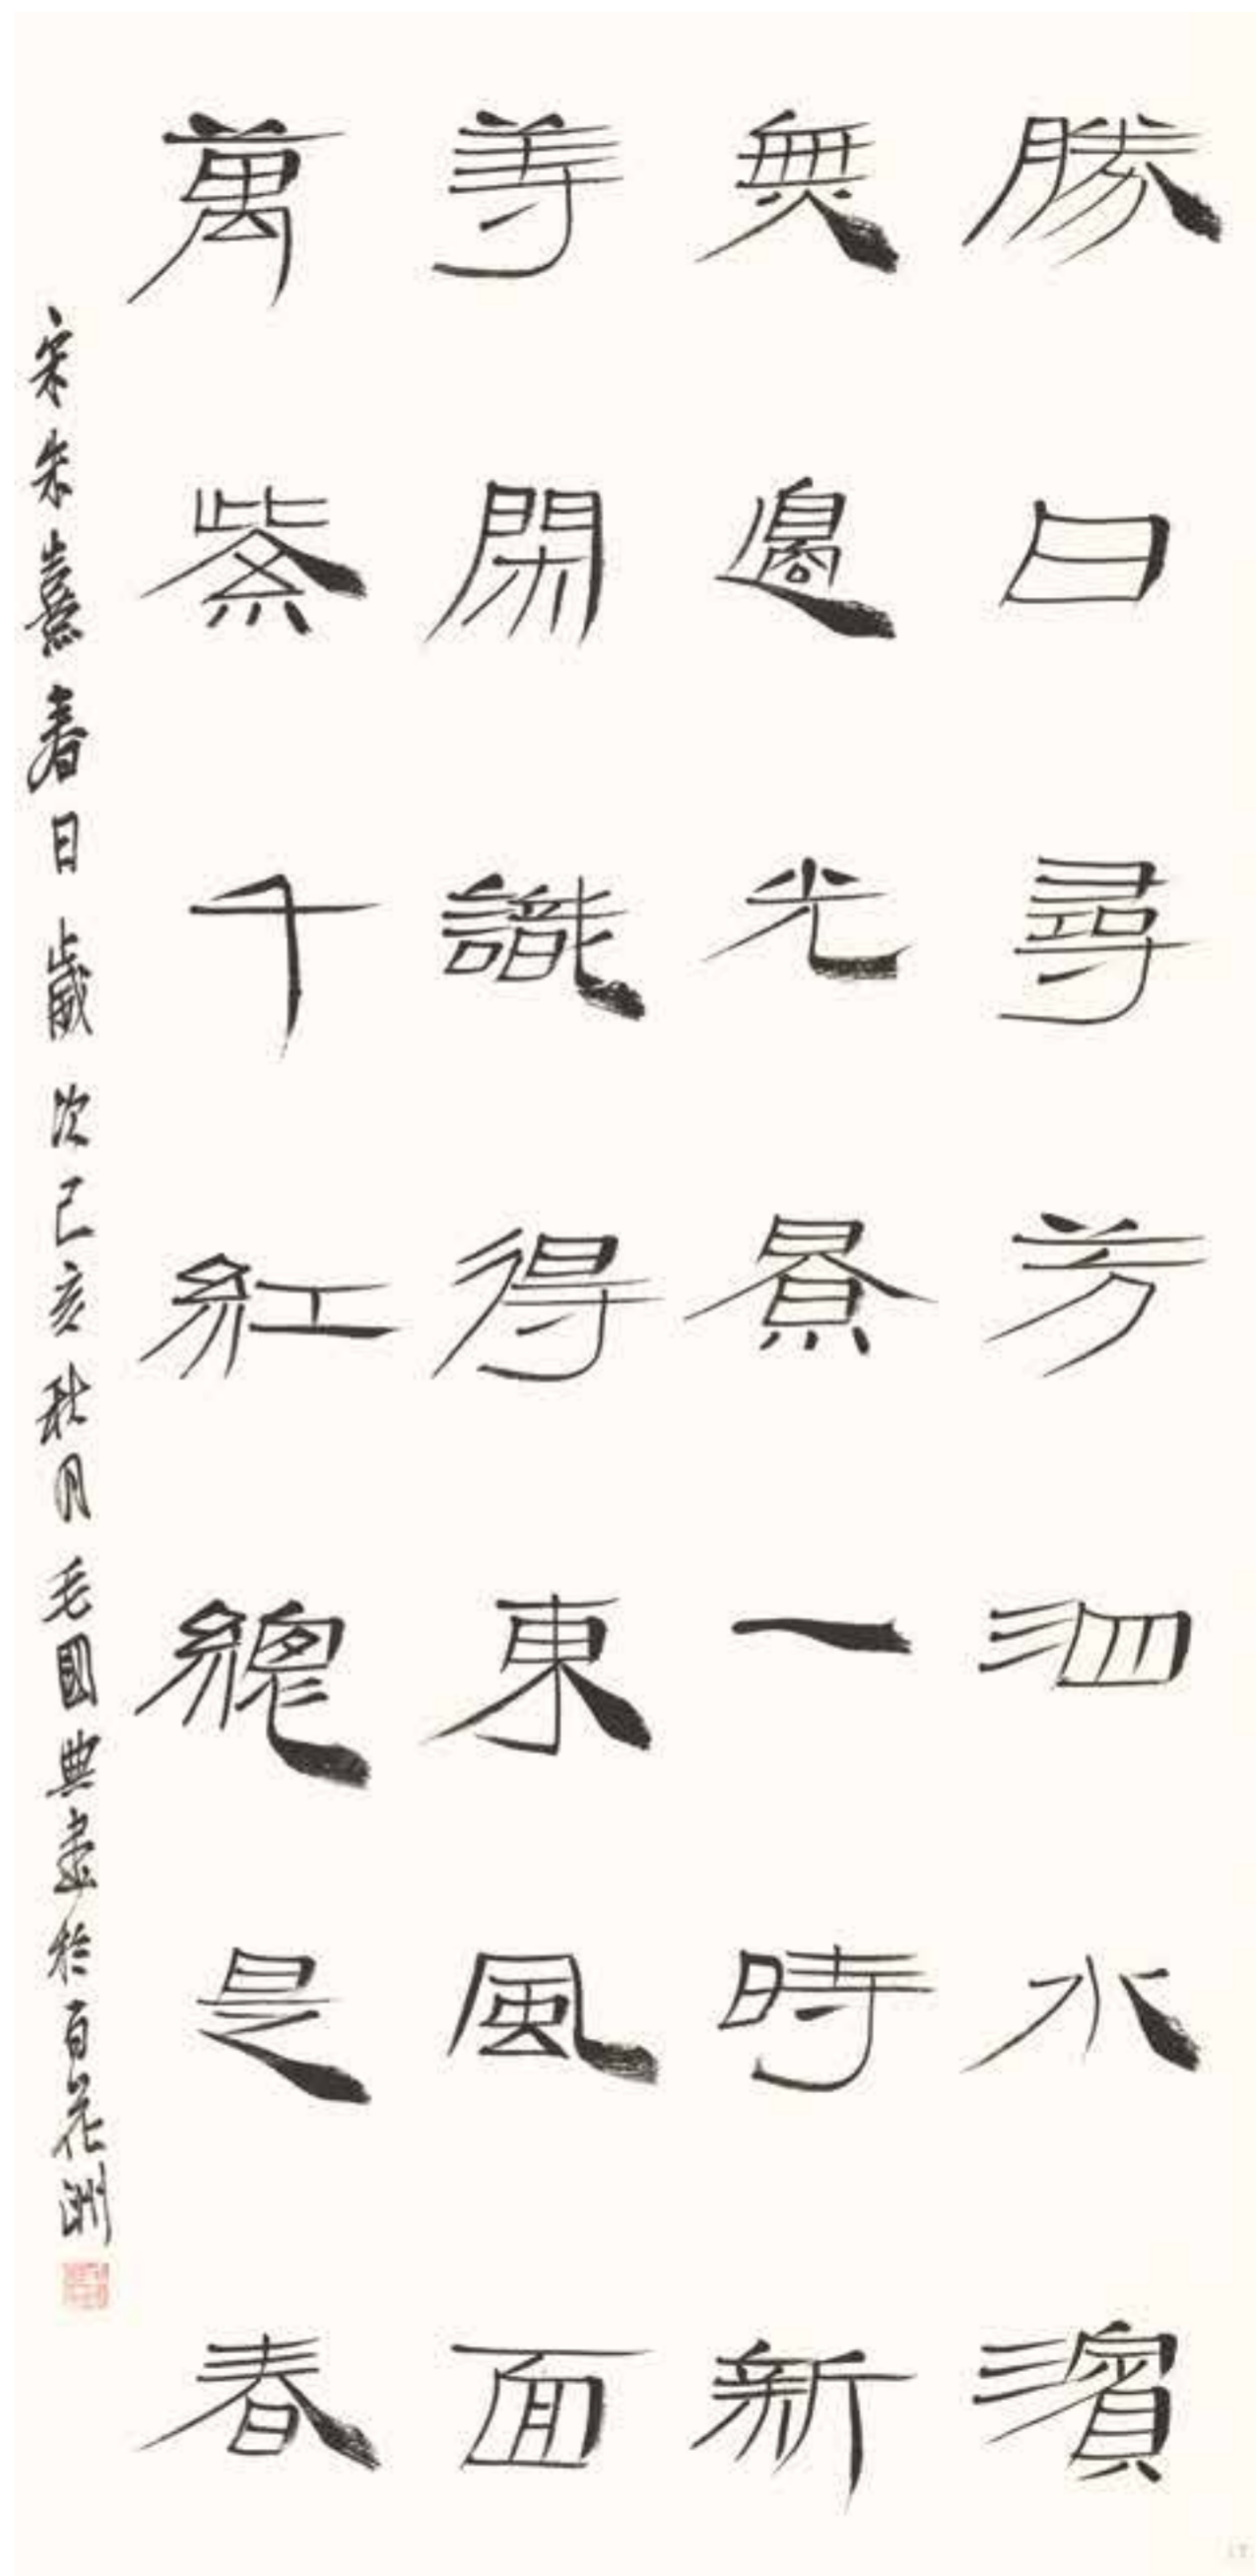 勝日尋芳泗水濱
無邊光景一時新
等閑識得東風面
萬紫千紅總是春
宋朱熹春日歲次己亥秋月毛國典書於百花洲